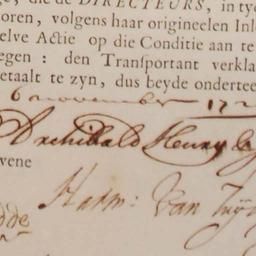 , die de DIRECTEURS, in ty
oren, volgens haar origineelen Inl
elve Actie op die Conditie aan te
egen: den Transportant verkla
etaalt te zyn, dus beyde onderte
6 november 172
Archibald Henry
vene
Harm: Van
dde